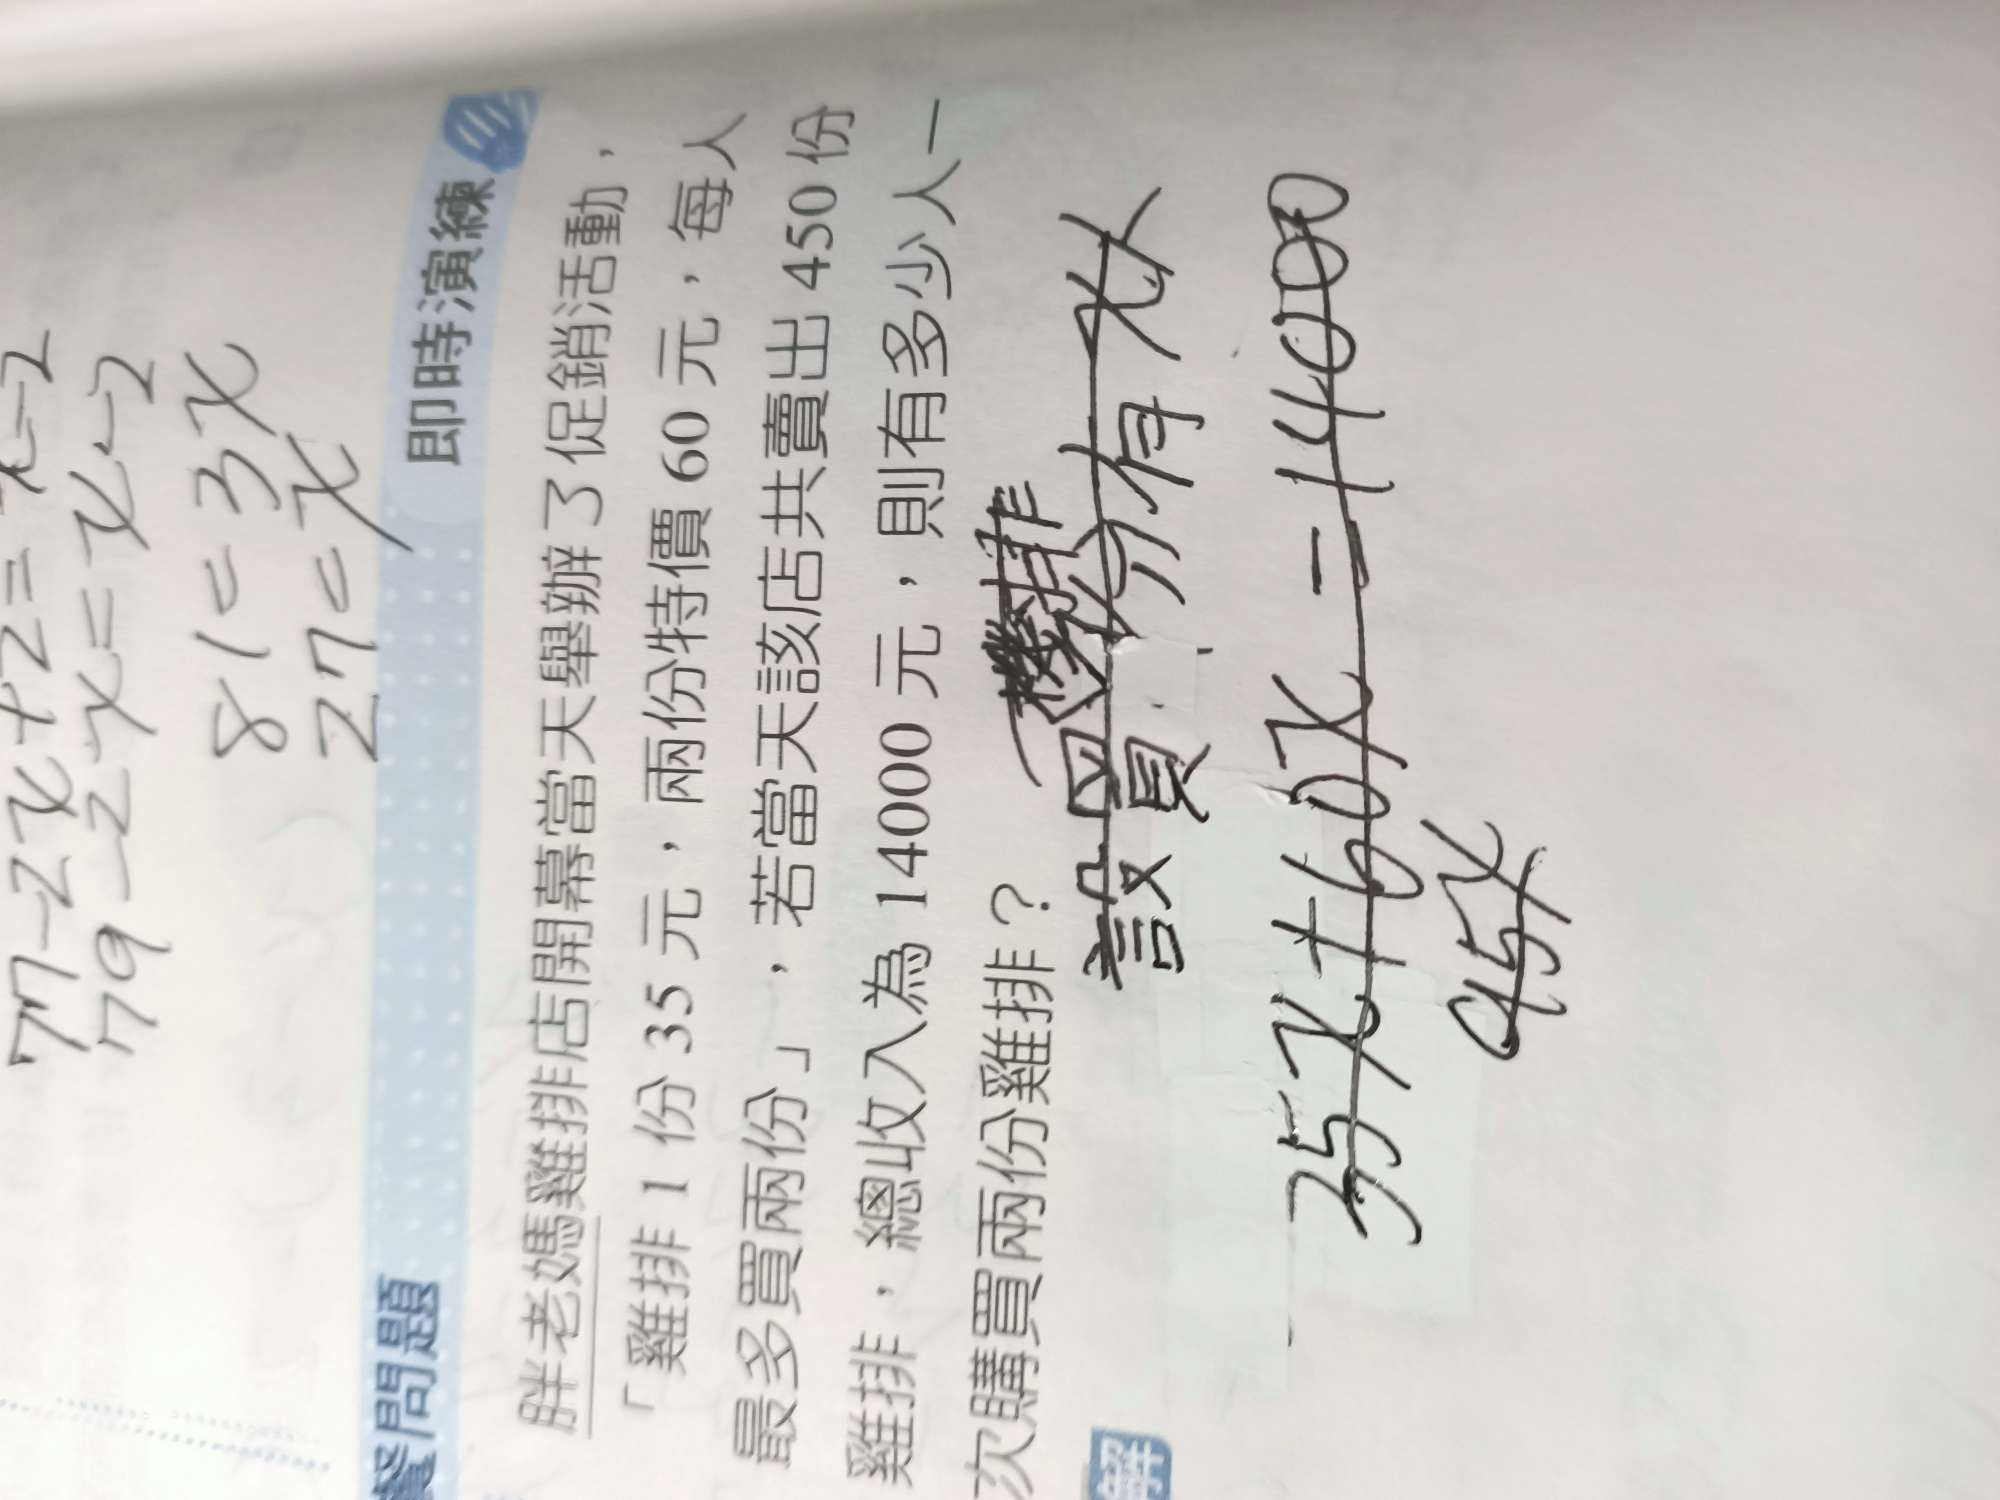 77-2x+2=x-2
79-2x=x-2
81=3x
27=x
問題 即時演練
胖老媽雞排店開幕當天舉辦了促銷活動，
「雞排 1 份 35 元，兩份特價 60 元，每人
最多買兩份」，若當天該店共賣出 450 份
雞排，總收入為 14000 元，則有多少人一
次購買兩份雞排？
解
設買 份有x
35x+60x=14000
95x